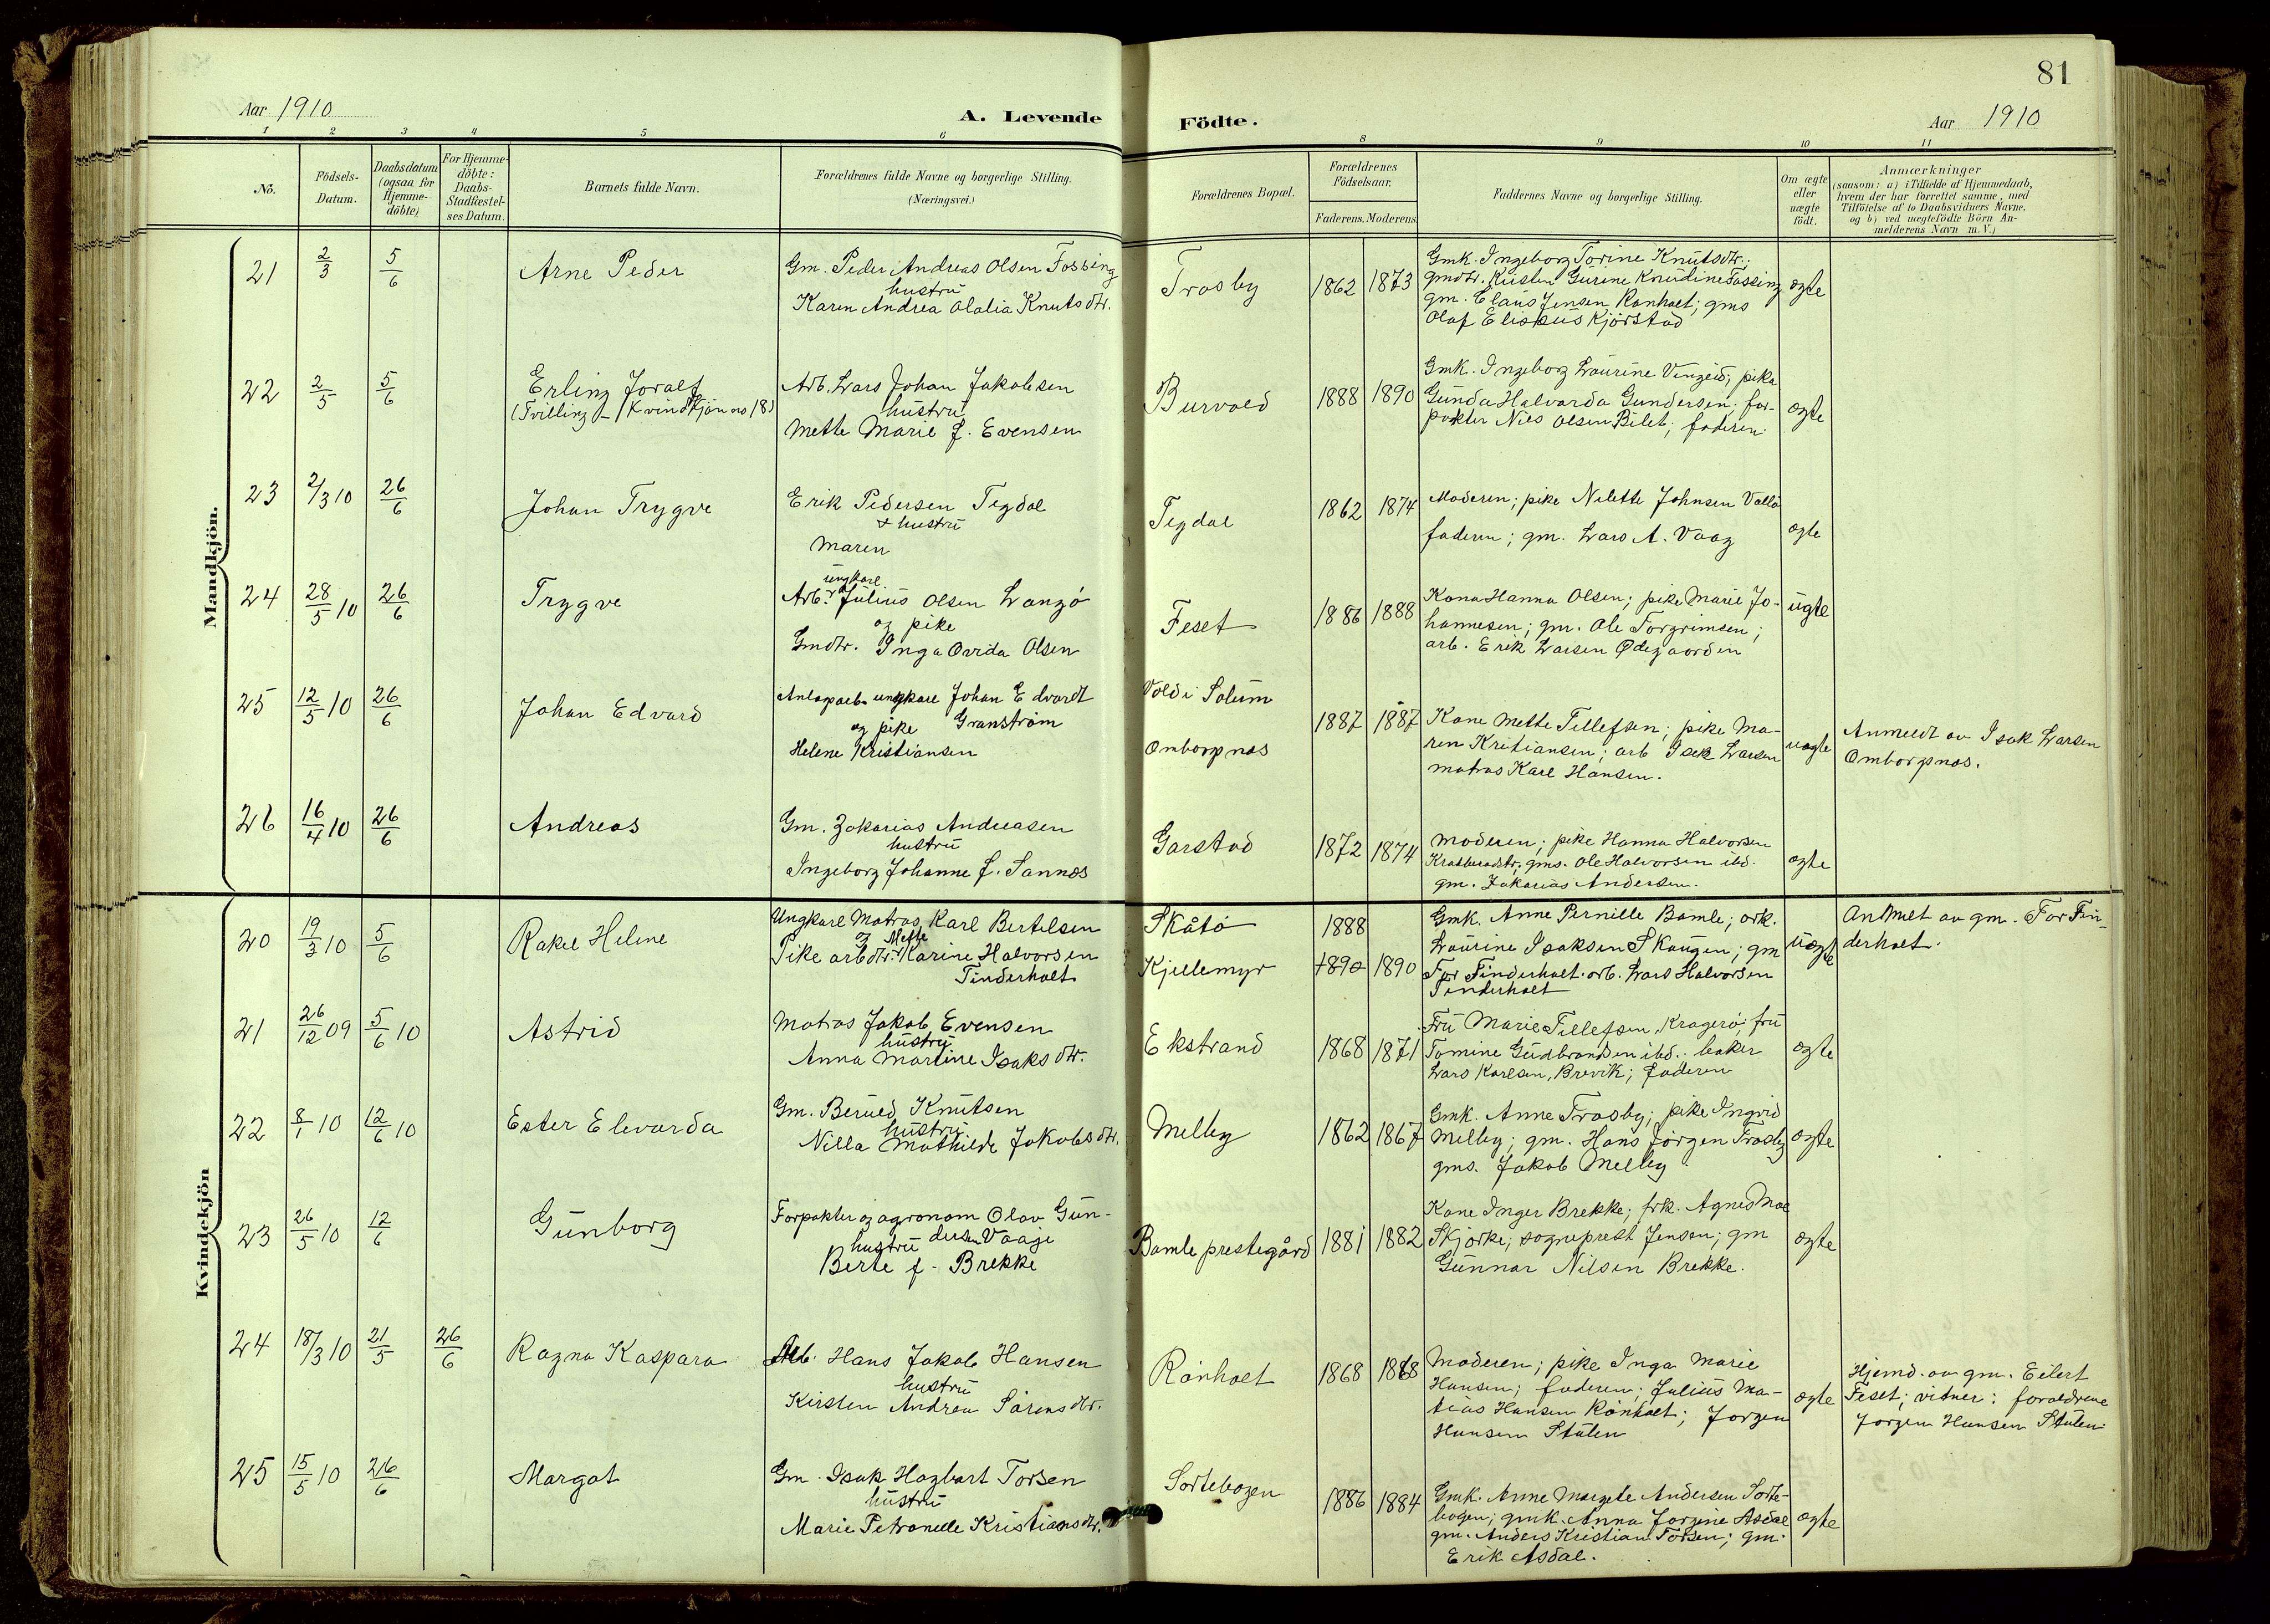 81
Aar 1910
A. Levende Födte.
Aar 1910
1 2 3 4 5 6 8 9 10 11
No.
Födsels-
Datum.
Daabsdatum
(ogsaa for
Hjemme-
döbte)
For Hjemme-
döbte:
Daabs-
Stadfæstel-
ses Datum.
Barnets fulde Navn.
Forældrenes fulde Navne og borgerlige Stilling.
(Næringsvei.)
Forældrenes Bopæl.
Forældrenes
Födselsaar.
Faderens. Moderens.
Faddernes Navne og borgerlige Stilling.
Om ægte
eller
uægte
födt.
Anmærkninger
(saasom: a) i Tilfælde af Hjemmedaab,
hvem der har forrettet samme, med
Tilföielse af to Daabsvidners Navne.
og b) ved uegtefödte Börn An-
melderens Navn m. V.)
Mandkjön.
21 2/3 5/6 Arne Peder
Gm. Peder Andreas Olsen Fossing
hustru
Karen Andrea Olalia Knutsdtr.
Trosby 1862 1873
Gmk. Ingeborg Torine Knutsdtr.;
gmdtr. Kristen Gurine Knudine Fossing
gm. Claus Jensen Rønholt; gms
Olaf Elisæus Kjørstad
ægte
22 2/5 5/6 Erling Toralf
(Tvilling - Kvindkjøn no 18)
Arb. Lars Johan Jakobsen
hustru
Mette Marie f. Evensen
Burvold 1888 1890
Gmk. Ingeborg Laurine Vingeid; pike
Gunda Halvarda Gundersen; for-
pakter Niels Olsen Bilet; faderen.
ægte
23 2/3 10 26/6 Johan Trygve
Erik Pedersen Tegdal
& hustru
Maren
Tegdal 1862 1874
Moderen; pike Nilette Johnsen Valle
faderen; gm. Lars A. Vaag
ægte
24 28/5 10 26/6 Trygve
ungkarl
Arb. Julius Olsen Langø
og pike
Gmdtr. Inga Ovida Olsen
Feset 1886 1888
Kona Hanna Olsen; pike Marie Jo-
hannesen; gm. Ole Torgrimsen;
arb. Erik Larsen Ødegaarden
ugte
25 12/5 10 26/6 Johan Edvard
Anlægsarb. ungkarl Johan Edvardt
og pike Granstrøm
Helene Kristiansen
Vold i Solum
Omborgsnes
1887 1887
Kone Mette Tellefsen; pike Ma-
ren Kristiansen; arb Isak Larsen
matros Karl Hansen.
uægte
Anmeldt av Isak Larsen
Omborgsnes.
26 16/4 10 26/6 Andreas
Gm. Zakarias Andreasen
hustru
Ingeborg Johanne f. Sannes
Garstad 1872 1874
Moderen; pike Hanna Halvorsen
gms. Ole Halvorsen ibd.
gm. Zakarias Andersen.
ægte
Kvindekjön
20 19/3 10 5/6 Rakel Helene
Ungkarl Matros Karl Bertelsen
og Mette
Pike arbdtr. Karine Halvorsen
Tinderholt
Skåtø 1888
Kjellemyr 1890 1890
Gmk. Anne Pernille Bamle; ork.
Laurine Isaksen Skaugen; gm
Tor Tinderholt. arb. Lars Halvorsen
Tinderholt
uægte
Anmelt av gm. Tor Tin-
derholt.
21 26/12 09 5/6 10 Astrid
Matros Jakob Evensen
hustru
Anna Martine Isaksdtr.
Ekstrand 1868 1871
Fru Marie Tellefsen, Kragerø; fru
Tomine Gudbrandsen ibd.; baker
Lars Karlsen, Brevik; faderen
ægte
22 8/1 10 12/6 10 Ester Elevarda
Gm. Berued Knutsen
hustru
Nilla Mathilde Jakobsdtr.
Melby 1862 1867
Gmk. Anne Trosby; pike Ingrid
Melby; gm. Hans Jørgen Trosby
gms. Jakob Melby
ægte
23 26/5 10 12/6 Gunborg
Forpakter og agronom Olav Gun-
hustru dersen Vaage
Berte f. Brekke
Bamle prestegård 1881 1882
Kone Inger Brekke; frk. Agnes Moe
Skjørke; sogneprest Jensen; gm
Gunnar Nilsen Brekke.
ægte
24 18/3 10 21/5 26/6 Ragna Kaspara
Arb. Hans Jakob Hansen
hustru
Kirsten Andrea Sørensdtr.
Rønholt 1868 1868
Moderen; pike Inga Marie
Hansen; faderen; Julius Ma-
tias Hansen Rønholt; Jorgen
Hansen Stulen
ægte
Hjemd. av gm. Eilert
Feset; vitner: foraldrene
Jorgen Hansen Stulen.
25 15/5 10 26/6 Margot
Gm. Isak Hagbart Torsen
hustru
Marie Petronelle Kristiansdtr.
Sortebogen 1886 1884
Gmk. Anne Margete Andersen Sorte-
bogen; gmk. Anna Jorgine Asdal
gm. Anders Kristian Torsen; gm.
Erik Asdal.
ægte